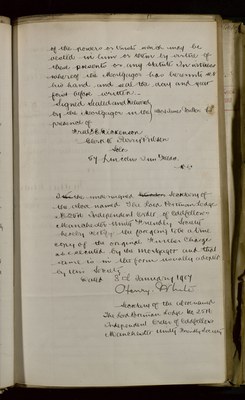 of the powers or trusts which may be
vested in him or them by virtue of
these presents or any statute In witness
whereof the Mortgagor has hereunto set
his hand and seal the day and year
first before written
Signed sealed and delivered
by the Mortgagor in the
presence of
Solr
67 Lincolns Inn Fields
the undersigned trustees of
the above named The Lord Bowman Lodge
Independent Order of Oddfellows
Manchester Unity Friendly Society
hereby certify the foregoing to be a true
copy of the original Further Charge
as executed by the Mortgagor and that
same is in the form usually adopted
by this Society
Dated 3rd January 1917
Henry
trustees of the abovenamed
The Lord Bowman Lodge No
Independent Order of Oddfellows
Manchester Unity Friendly Society